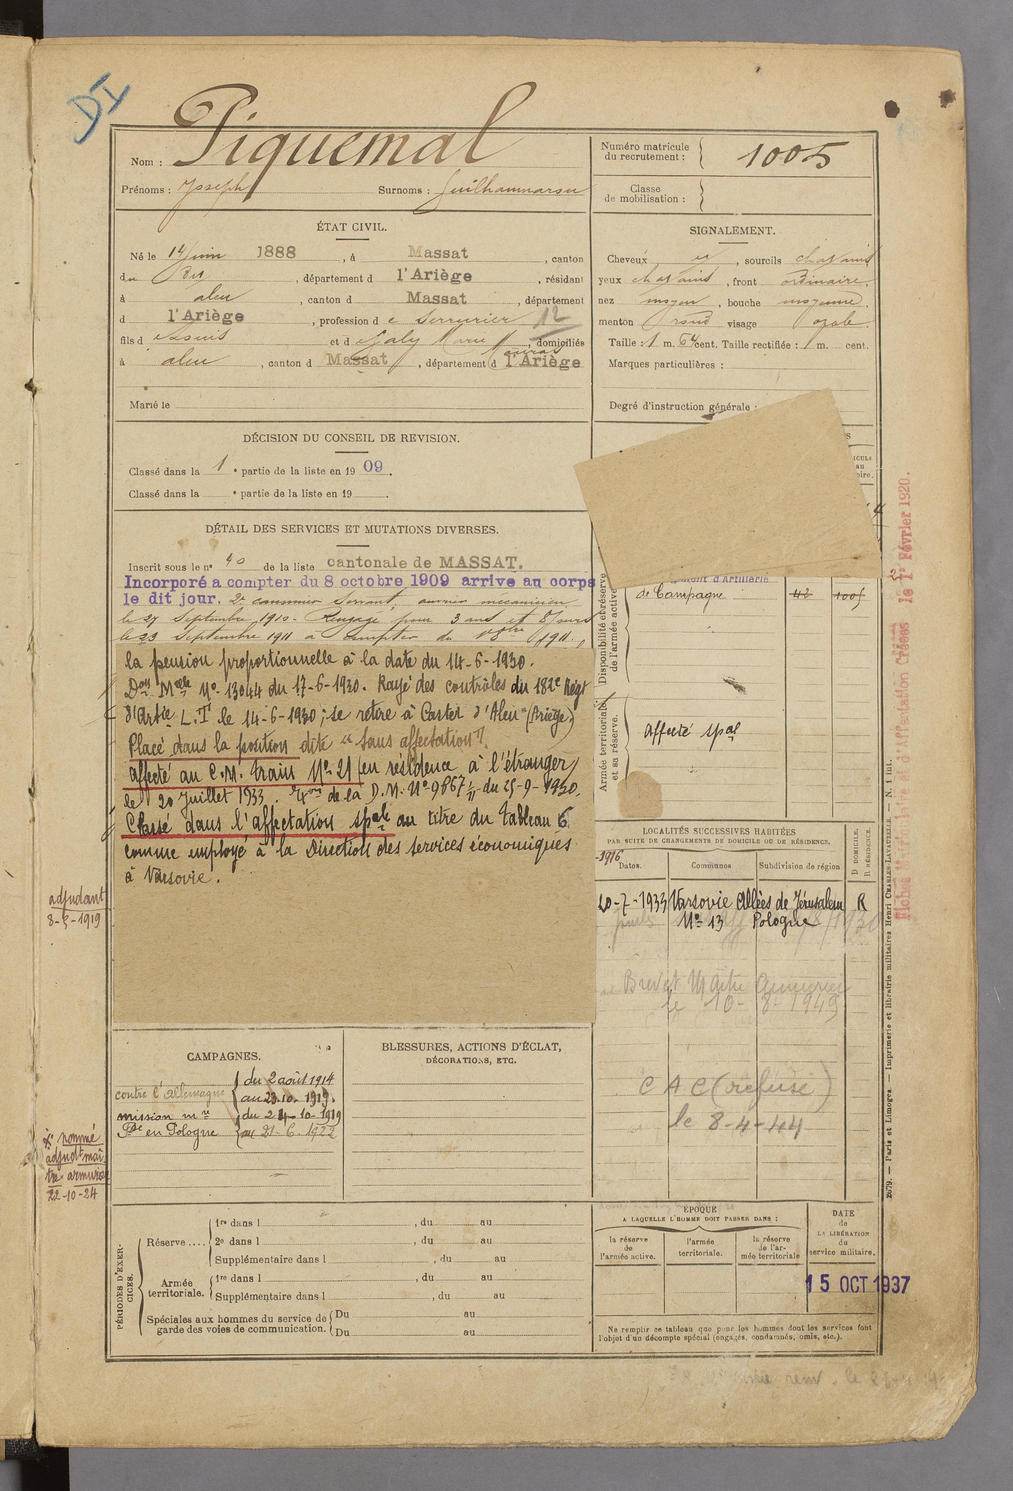 DI
Nom : Piquemal
Prénoms : Joseph Surnoms : Guilhaumarou
Numéro matricule du recrutement : 1005
Classe de mobilisation :
ÉTAT CIVIL.
Né le 14 juin 1888, à Massat, canton
du Dit, département d l'Ariège, résidant
à aleu, canton d Massat, département
d l'Ariège, profession d e serrurier 12
fils d e Louis et d e Galy Marie, domiciliés
à aleu, canton d Massat, département d l'Ariège
Marié le
SIGNALEMENT.
Cheveux et, sourcils chatains
yeux chatains, front ordinaire.
nez moyen, bouche moyenne.
menton rond visage ovale.
Taille : 1 m. 64 cent. Taille rectifiée : 1 m. cent.
Marques particulières :
Degré d'instruction générale :
DÉCISION DU CONSEIL DE REVISION.
Classé dans la 1e partie de la liste en 1909.
Classé dans la e partie de la liste en 19 .
DÉTAIL DES SERVICES ET MUTATIONS DIVERSES.
Inscrit sous le n° 40 de la liste cantonale de MASSAT.
Incorporé a compter du 8 octobre 1909 arrivé au corps
le dit jour. 2e canonnier servant, ouvrier mécanicien
le 27 Septembre 1910. Rengagé pour 3 ans et 8 jours
le 23 Septembre 1911 à compter du 1911.
la pension proportionnelle à la date du 14-6-1930.
Don Melle No 13044 du 17-6-1930. Rayé des contrôles du 182e Régt
d'Artie L.T le 14-6-1930; se retire à Castet d'Aleu (Ariège)
Placé dans la position dite "sans affectation".
affecté au C.M. train No 21 (en residence à l'étranger)
le 20 Juillet 1933. de la D.M. No 9867 1/11 du 25-9-1930.
Classé dans l'affectation spale au titre du tableau 6
comme employé à la Direction des services économiques
à Varsovie.
adjudant
8-5-1919
Disponibilité et réserve de l'armée active.
d'Artillerie
de Campagne 42 1005
Armée territoriale et sa réserve.
Affecté spal
LOCALITÉS SUCCESSIVES HABITÉES
PAR SUITE DE CHANGEMENTS DE DOMICILE OU DE RÉSIDENCE.
-1916
Dates. Communes Subdivision de région
D DOMICILE.
R RÉSIDENCE.
20-7-1933 Varsovie Allées de Jérusalem R
No 13 Pologne
Brevet
le 10-8-1949
C A C (refusé)
le 8-4-44
CAMPAGNES.
contre l'Allemagne du 2 août 1914
au 23.10.1919.
mission mre du 24-10-1919
en Pologne au 21-6-1922
BLESSURES, ACTIONS D'ÉCLAT,
DÉCORATIONS, ETC.
nommé
adjudt maî-
tre armurier
22-10-24
PÉRIODES D'EXERCICES.
Réserve....
1re dans l , du au
2e dans l , du au
Supplémentaire dans l , du au
Armée territoriale.
1re dans l , du au
Supplémentaire dans l , du au
Spéciales aux hommes du service de
garde des voies de communication.
Du au
Du au
ÉPOQUE
A LAQUELLE L'HOMME DOIT PASSER DANS :
la réserve de l'armée active.
l'armée territoriale.
la réserve de l'armée territoriale
DATE
de
LA LIBÉRATION
du
service militaire.
15 OCT 1937
Ne remplir ce tableau que pour les hommes dont les services font
l'objet d'un décompte spécial (engagés, condamnés, omis, etc.).
Fiches Matriculaire et d'Affectation Créées le 1er Février 1920.
2679. — Paris et Limoges. — Imprimerie et librairie militaires Henri CHARLES-LAVAUZELLE. — N. 1 int.